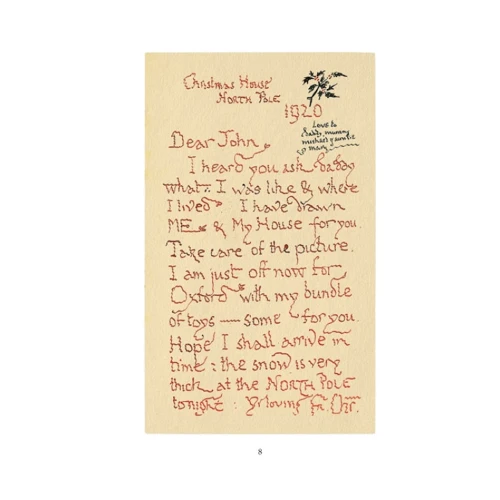 Christmas House
NORTH POLE
1920
Love to
daddy, mummy
michael & auntie
mary
Dear John
I heard you ask daddy
what I was like & where
I lived I have drawn
ME & My House for you.
Take care of the picture.
I am just off now for
Oxford with my bundle
of toys — some for you.
Hope I shall arrive in
time : the snow is very
thick at the NORTH POLE
tonight : Yr loving Fr. Chr.
8